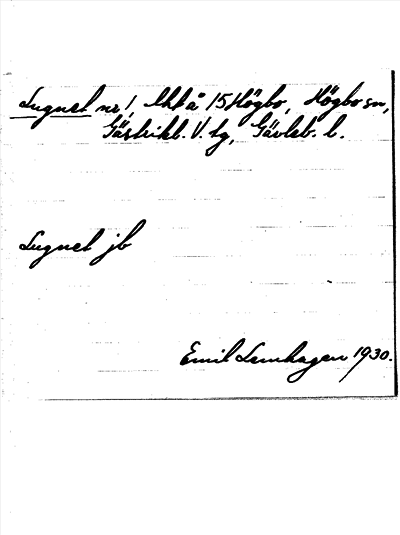 Lugnet nr 1, Mkt å 15 Högbo, Högbo sn,
Gästrikl. V. tg, Gävleb. l.
Lugnet jb
Emil Lernhagen 1930.